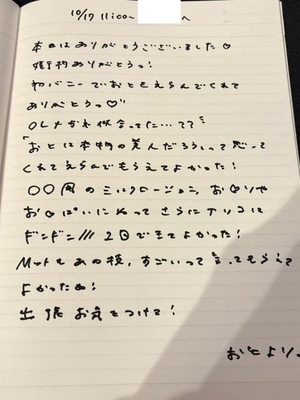 10/17 11:00~ へ
本日はありがとうございました♡
予約ありがとうっ!
初バニーでおとをえらんでくれて
ありがとうっ♡
OLメガネ似合ってた…??
「おとは本物の美人だろう」って思って
くれてえらんでもらえてよかった!
〇〇円のミルクローション、おしりや
おっぱいにぬって さらにトリコに
ギンギン/// 2回できてよかった!
Mっ気もあの技、すごいって言ってもらえて
よかったぁ!
出張お気をつけて!
おとより